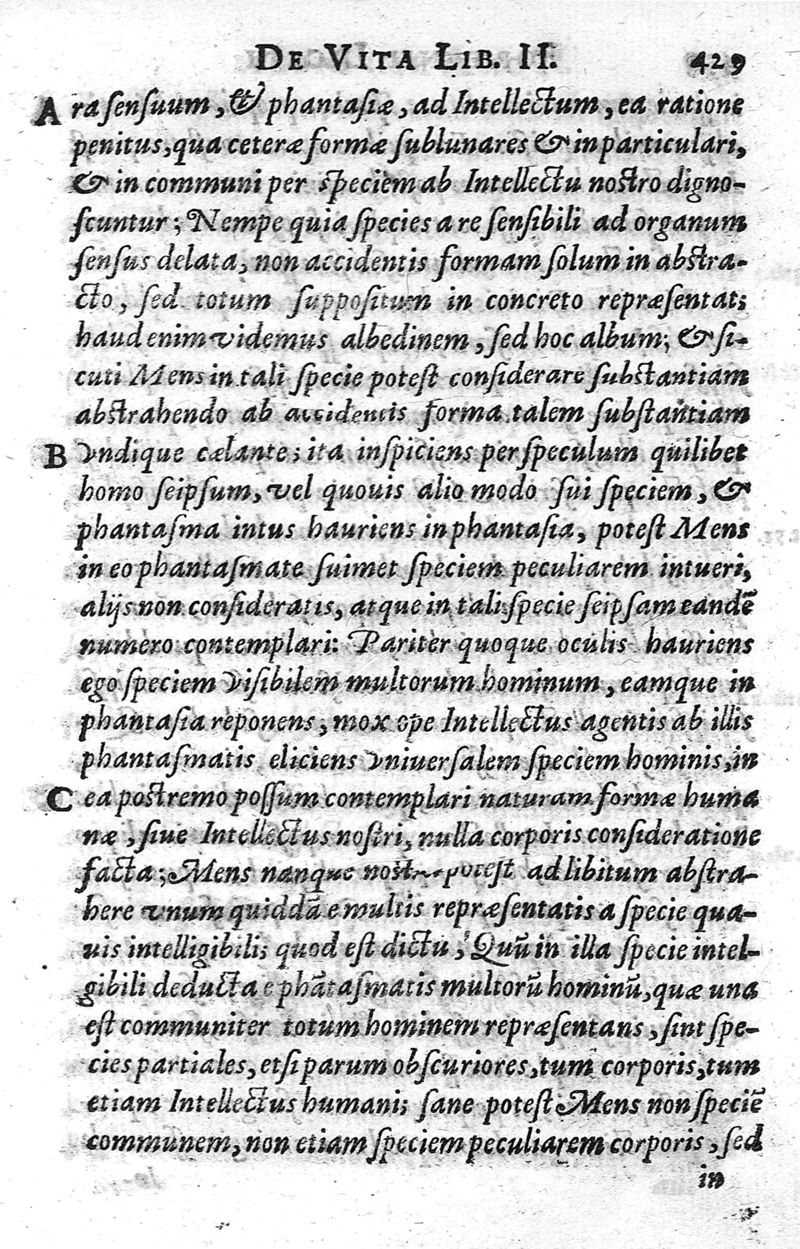 DE VITA LIB. II. 429
A ra ſenſuum, & phantaſiæ, ad Intellectum, ea ratione
penitus, qua ceteræ formæ ſublunares & in particulari,
& in communi per ſpeciem ab Intellectu noſtro digno-
ſcuntur; Nempe quia ſpecies a re ſenſibili ad organum
ſenſus delata, non accidentis formam ſolum in abſtra-
cto, ſed totum ſuppoſitum in concreto repræſentat;
haud enim videmus albedinem, ſed hoc album; & ſi-
cuti Mens in tali ſpecie poteſt conſiderare ſubſtantiam
abſtrahendo ab accidentis forma talem ſubſtantiam
B vndique cælante; ita inſpiciens per ſpeculum quilibet
homo ſeipſum, vel quouis alio modo ſui ſpeciem, &
phantaſma intus hauriens in phantaſia, poteſt Mens
in eo phantaſmate ſuimet ſpeciem peculiarem intueri,
alijs non conſideratis, atque in tali ſpecie ſeipſam eandē
numero contemplari: Pariter quoque oculis hauriens
ego ſpeciem viſibilem multorum hominum, eamque in
phantaſia reponens, mox ope Intellectus agentis ab illis
phantaſmatis eliciens vniuerſalem ſpeciem hominis, in
C ea poſtremo poſſum contemplari naturam formæ huma
næ, ſiue Intellectus noſtri, nulla corporis conſideratione
facta; Mens nanque noſtra poteſt ad libitum abſtra-
here vnum quiddā e multis repræſentatis a ſpecie qua-
uis intelligibili; quod eſt dictu, Quū in illa ſpecie intel-
gibili deducta e phātaſmatis multorū hominū, quæ una
eſt communiter totum hominem repræſentans, ſint ſpe-
cies partiales, etſi parum obſcuriores, tum corporis, tum
etiam Intellectus humani; ſane poteſt Mens non ſpeciē
communem, non etiam ſpeciem peculiarem corporis, ſed
in